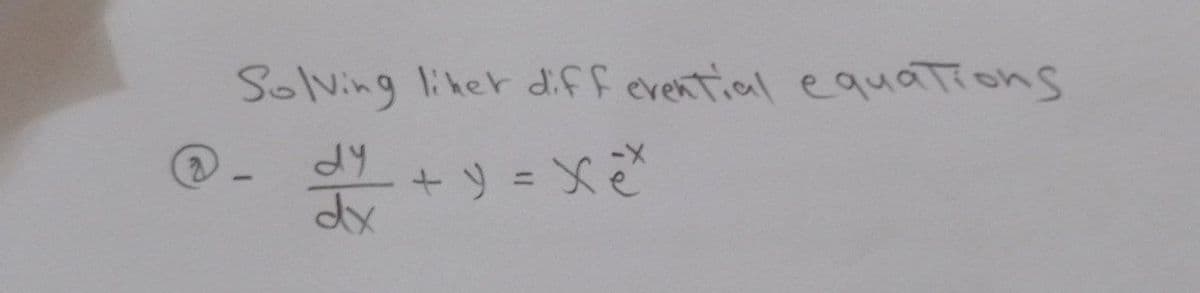 Solving liner differential equations
② - dy/dx + y = x e^-x